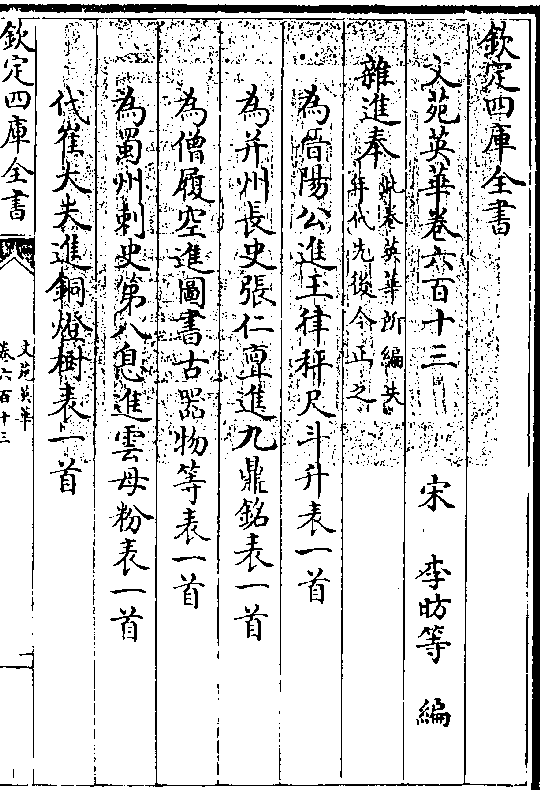 欽定四庫全書
文苑英華卷六百十三
宋 李昉等 編
雜進奉
此卷英華所編失
年代先後今正之
為晉陽公進玉律秤尺斗升表一首
為并州長史張仁亶進九鼎銘表一首
為僧履空進圖書古器物等表一首
為蜀州刺史第八息進雲母粉表一首
代崔大夫進銅燈樹表一首
欽定四庫全書
文苑英華
卷六百十三
一